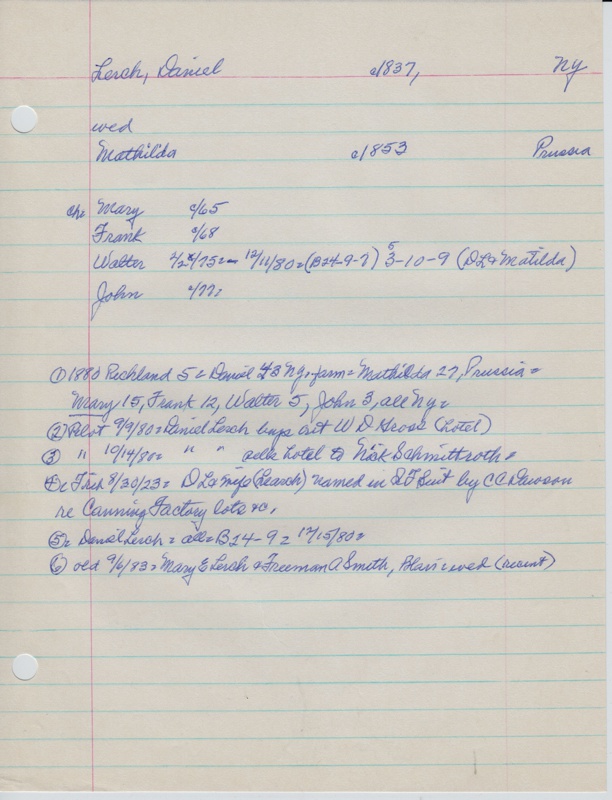 Lerch, Daniel c/1837, NY
wed
Mathilda c/1853 Prussia
ch= Mary c/65
Frank c/68
Walter 12/11/80= (B24-9-7) 3-10-9 (DL & Matilda)
John c/77:
① 1880 Richland 5= Daniel 43 NY, farm= Mathilda 27, Prussia=
Mary 15, Frank 12, Walter 5, John 3, all NY=
② Pilot 9/9/80= Daniel Lerch buys out W D (hotel)
③ " 10/14/80= " " sells hotel to Nick Schmittroth=
8/30/23= DL & wife (Learch) named in Suit by CC Dawson
re Canning Factory lots &c,
⑤= Daniel Lerch = all= B24-9= 12/15/80=
⑥ 9/6/83= Mary E Lerch & Freeman A Smith, wed (recent)